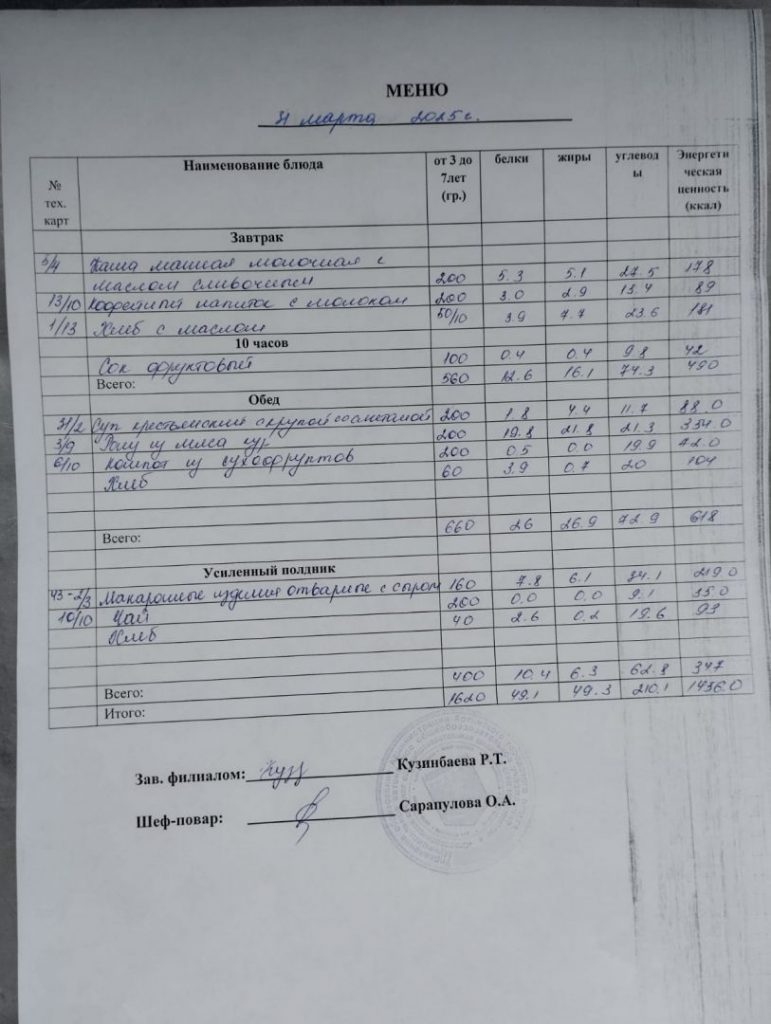 МЕНЮ
31 марта 2025г.
№ тех. карт Наименование блюда от 3 до 7лет (гр.) белки жиры углеводы Энергетическая ценность (ккал)
Завтрак
5/4 Каша манная молочная с
маслом сливочным 200 5.3 5.1 27.5 178
13/10 Кофейный напиток с молоком 200 3.0 2.9 13.4 89
1/13 Хлеб с маслом 50/10 3.9 7.7 23.6 181
10 часов
Сок фруктовый 100 0.4 0.4 9.8 42
Всего: 560 12.6 16.1 74.3 490
Обед
31/2 Суп крестьянский с крупой со сметаной 200 1.8 4.4 11.7 88.0
3/9 из мяса 200 19.8 21.8 21.3 334.0
6/10 Компот из сухофруктов 200 0.5 0.0 19.9 42.0
Хлеб 60 3.9 0.7 20 104
Всего: 660 26 26.9 72.9 618
Усиленный полдник
43-2/3 Макаронные изделия отварные с сыром 160 7.8 6.1 34.1 219.0
10/10 Чай 200 0.0 0.0 9.1 35.0
Хлеб 40 2.6 0.2 19.6 93
Всего: 400 10.4 6.3 62.8 347
Итого: 1620 49.1 49.3 210.1 1456.0
Зав. филиалом: Кузинбаева Р.Т.
Шеф-повар: Сарапулова О.А.